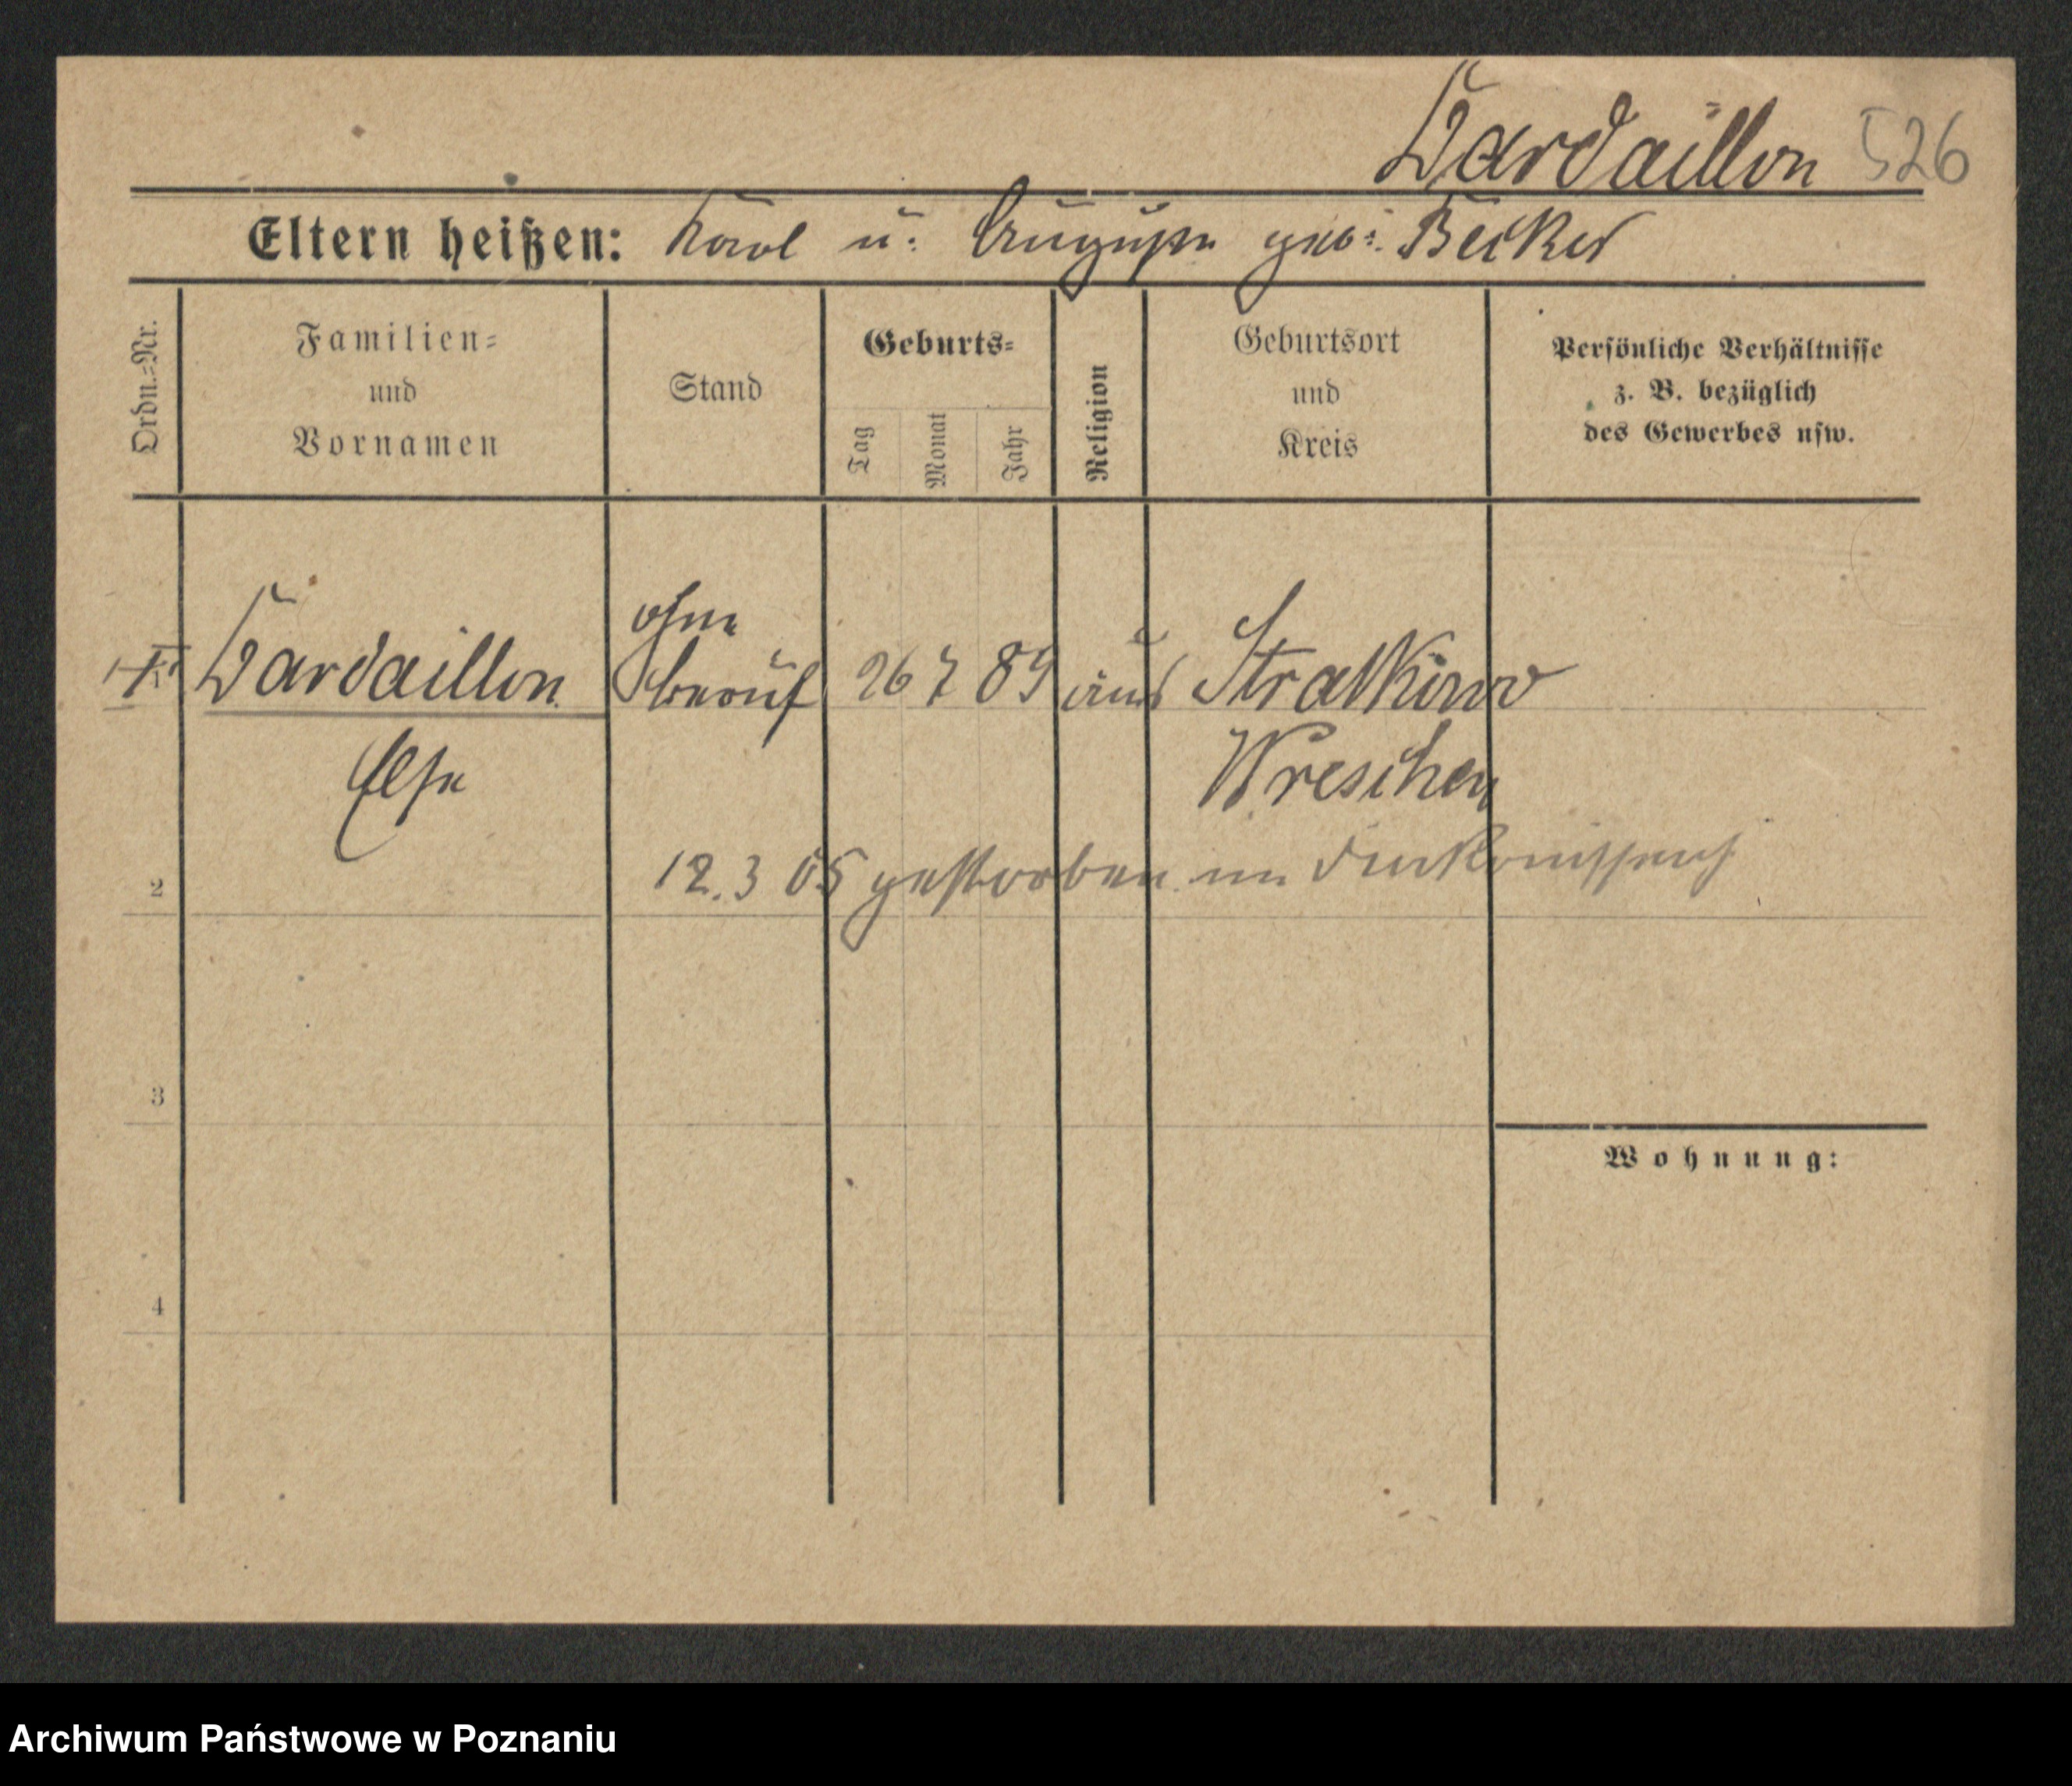 Dardaillon 526
Eltern heißen: Karl u. Auguste geb: Becker
Ordn.-Nr.
Familien-
und
Vornamen
Stand
Geburts-
Tag
Monat
Jahr
Religion
Geburtsort
und
Kreis
Persönliche Verhältnisse
z. B. bezüglich
des Gewerbes usw.
ohne
Dardaillon beruf 26 7 89 aus
Else
Wreschen
12.3 05 gestorben im
2
3
Wohnung:
4
Archiwum Państwowe w Poznaniu